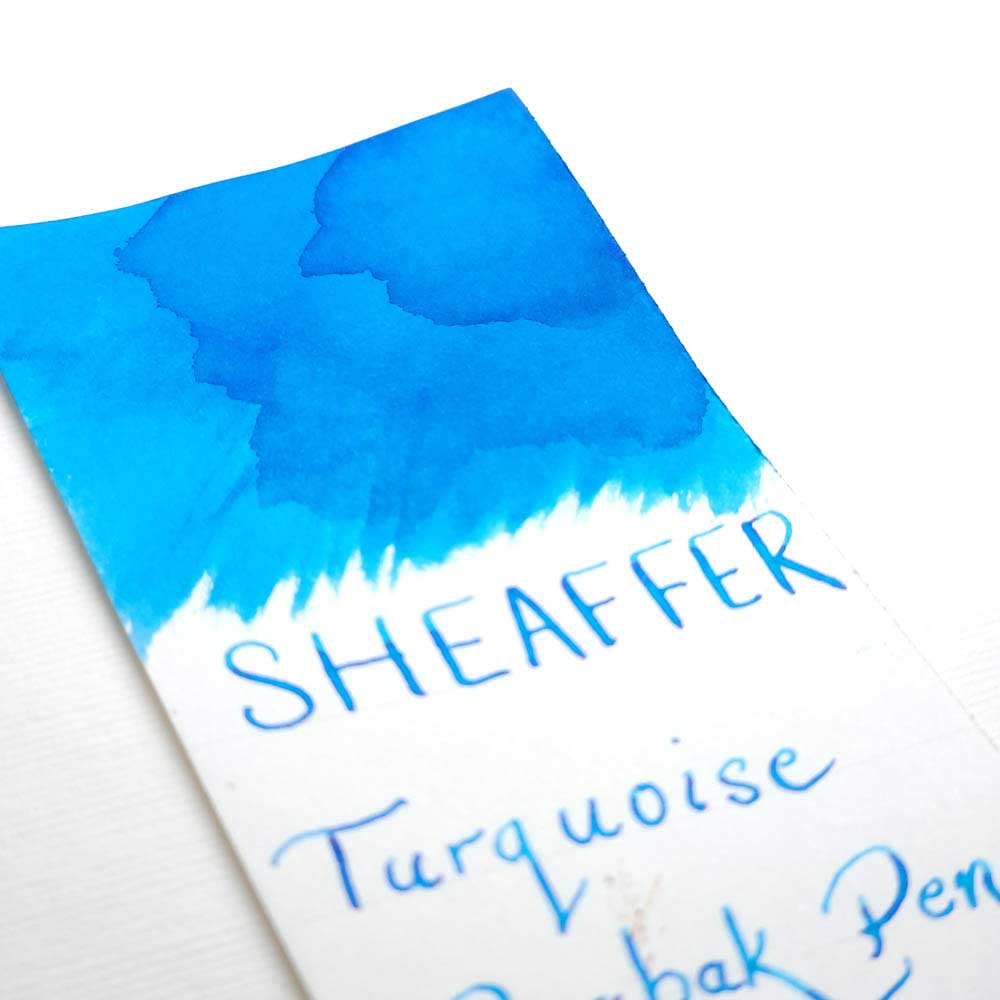 SHEAFFER
Turquoise
Pen